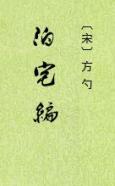 〔宋〕方勺
泊宅編